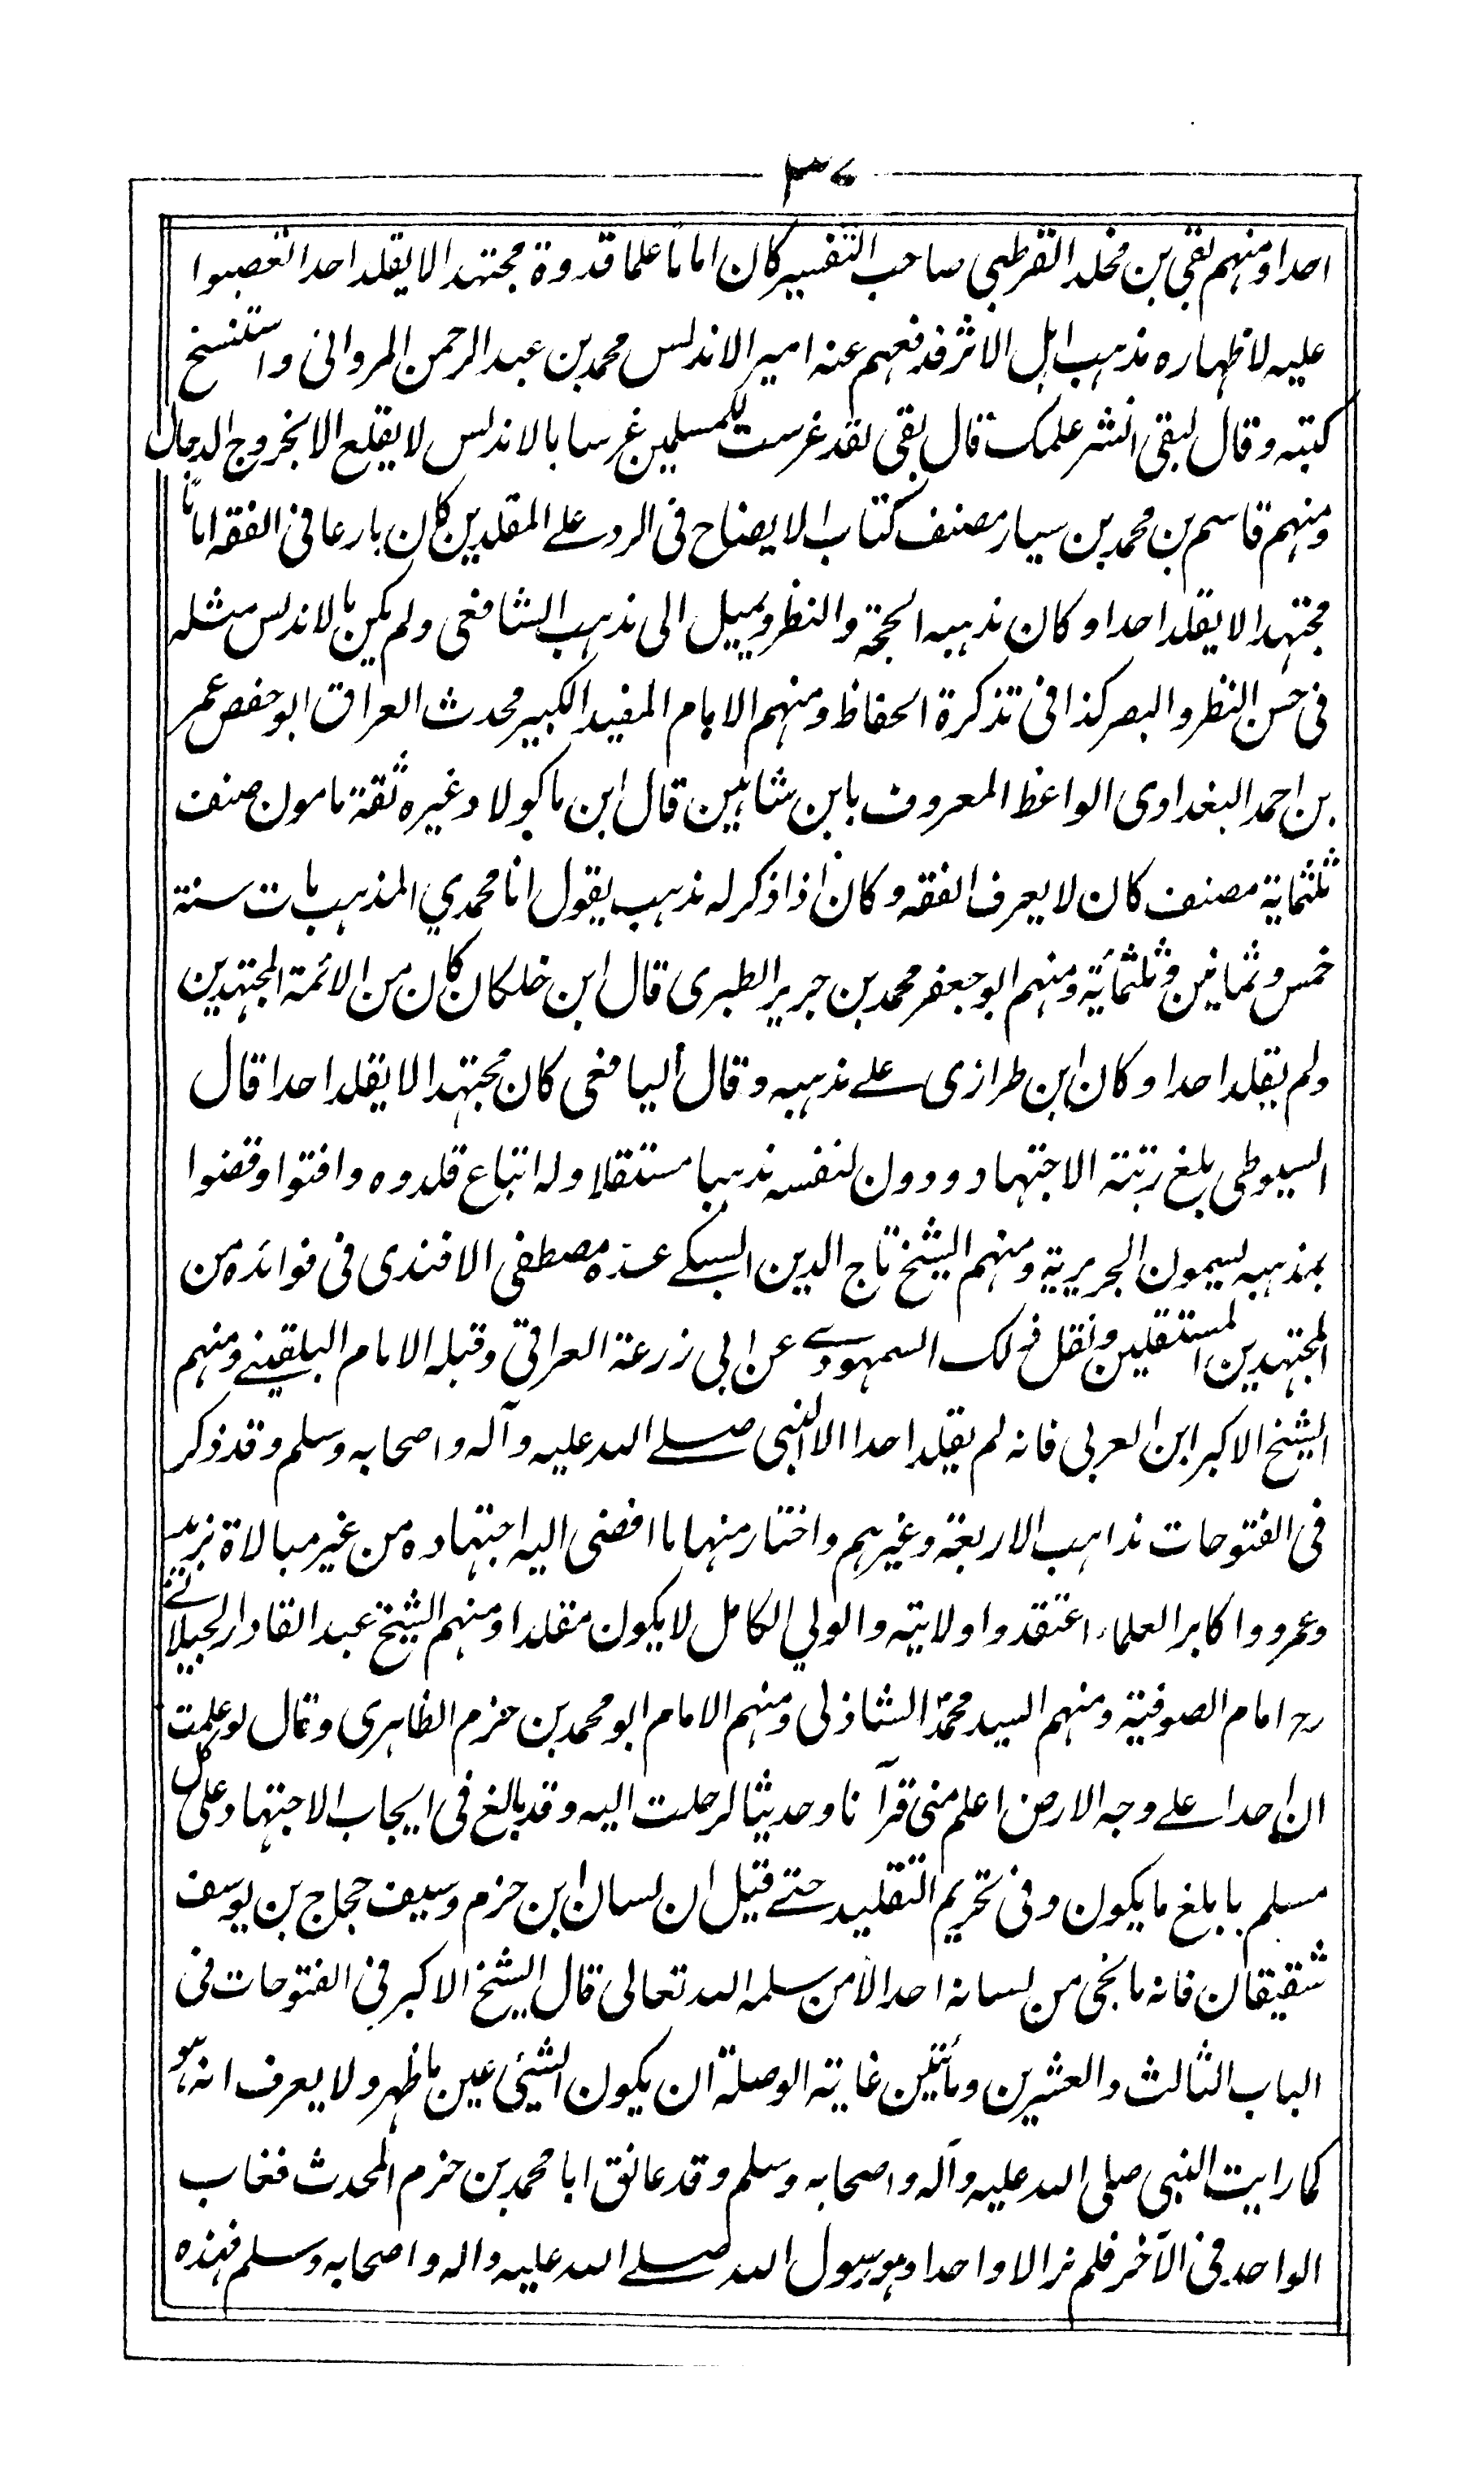 ٣٧
احدا ومنهم بقى بن مخلد القرطبى صاحب التفسير كان اماما علما قدوة مجتهدا لا يقلد احدا تعصبوا
عليه لاظهاره مذهب اهل الاثر فدفعهم عنه امير الاندلس محمد بن عبد الرحمن المروانى واستنسخ
كتبه وقال لبقى انشر علمك قال بقى لقد غرست للمسلمين غرسا بالاندلس لا يقلع الا بخروج الدجال
ومنهم قاسم بن محمد بن سيار مصنف كتاب الايضاح فى الرد على المقلدين كان بارعا فى الفقه اماما
مجتهدا لا يقلد احدا وكان مذهبه الحجة والنظر ويميل الى مذهب الشافعى ولم يكن بالاندلس مثله
فى حسن النظر والبصر كذا فى تذكرة الحفاظ ومنهم الامام المفيد الكبير محدث العراق ابو حفص عمر
بن احمد البغدادى الواعظ المعروف بابن شاهين قال ابن ماكولا وغيره ثقة مامون صنف
ثلثماية مصنف كان لا يعرف الفقه وكان اذا ذكر له مذهب يقول انا محمدي المذهب مات سنة
خمس وثمانين وثلثمائة ومنهم ابو جعفر محمد بن جرير الطبرى قال ابن خلكان كان من الائمة المجتهدين
ولم يقلد احدا وكان ابن طرازى على مذهبه وقال اليافعى كان مجتهدا لا يقلد احدا قال
السيوطى بلغ رتبة الاجتهاد ودون لنفسه مذهبا مستقلا وله اتباع قلدوه وافتوا وقضوا
بمذهبه يسمون الجريرية ومنهم الشيخ تاج الدين السبكى عده مصطفى الافندى فى فوائده من
المجتهدين المستقلين ونقل ذلك السمهودى عن ابى زرعة العراقى وقبله الامام البلقينى ومنهم
الشيخ الاكبر ابن العربى فانه لم يقلد احدا الا النبى صلى الله عليه وآله واصحابه وسلم وقد ذكر
فى الفتوحات مذاهب الاربعة وغيرهم واختار منها ما افضى اليه اجتهاده من غير مبالاة بزيد
وعمرو واكابر العلماء اعتقدوا ولايته والولي الكامل لا يكون مقلدا ومنهم الشيخ عبد القادر الجيلانى
رح امام الصوفية ومنهم السيد محمد الشاذلى ومنهم الامام ابو محمد بن حزم الظاهرى وقال لو علمت
ان احدا على وجه الارض اعلم منى قرآنا وحديثا لرحلت اليه وقد بالغ فى ايجاب الاجتهاد على كل
مسلم بابلغ ما يكون وفى تحريم التقليد حتى قيل ان لسان ابن حزم وسيف حجاج بن يوسف
شقيقان فانه ما نجى من لسانه احد الا من سلمه الله تعالى قال الشيخ الاكبر فى الفتوحات فى
الباب الثالث والعشرين ومأتين غاية الوصلة ان يكون الشيئ عين ما ظهر ولا يعرف انه هو
كما رايت النبى صلى الله عليه وآله واصحابه وسلم وقد عانق ابا محمد بن حزم المحدث فغاب
الواحد فى الآخر فلم نر الا واحدا وهو رسول الله صلى الله عليه واله واصحابه وسلم فهذه